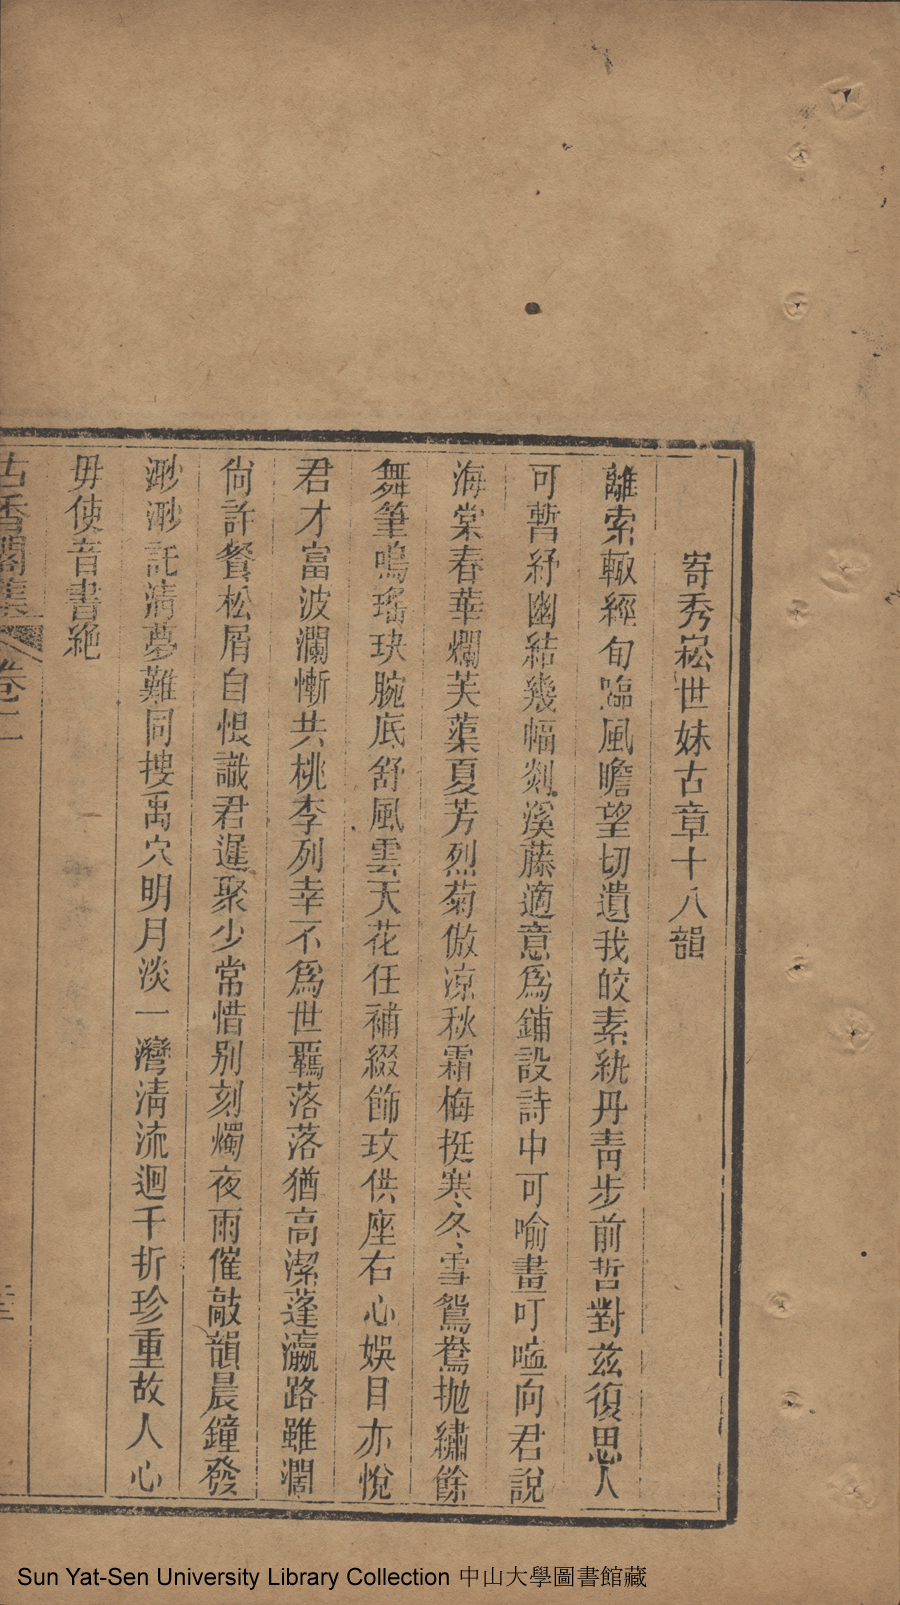 寄秀崧世妹古章十八韻
離索輙經旬臨風瞻望切遺我皎素紈丹靑步前哲對兹復思人
可暫紓幽結幾幅剡溪藤適意爲鋪設詩中可喻畫叮嗑向君說
海棠春華爛芙蕖夏芳烈菊倣凉秋霜梅挺寒冬雪鴛鴦抛繡餘
舞筆鳴瑤玦腕底舒風雲天花任補綴飾玟供座右心娛目亦悅
君才富波瀾慚共桃李列幸不爲世羈落落猶高潔蓬瀛路雖濶
尙許餐松屑自恨識君遲聚少常惜别刻燭夜雨催敲韻晨鐘發
渺渺託淸夢難同搜禹穴明月淡一灣淸流迴千折珍重故人心
毋使音書絶
古香閣集 卷二
Sun Yat-Sen University Library Collection 中山大學圖書館藏